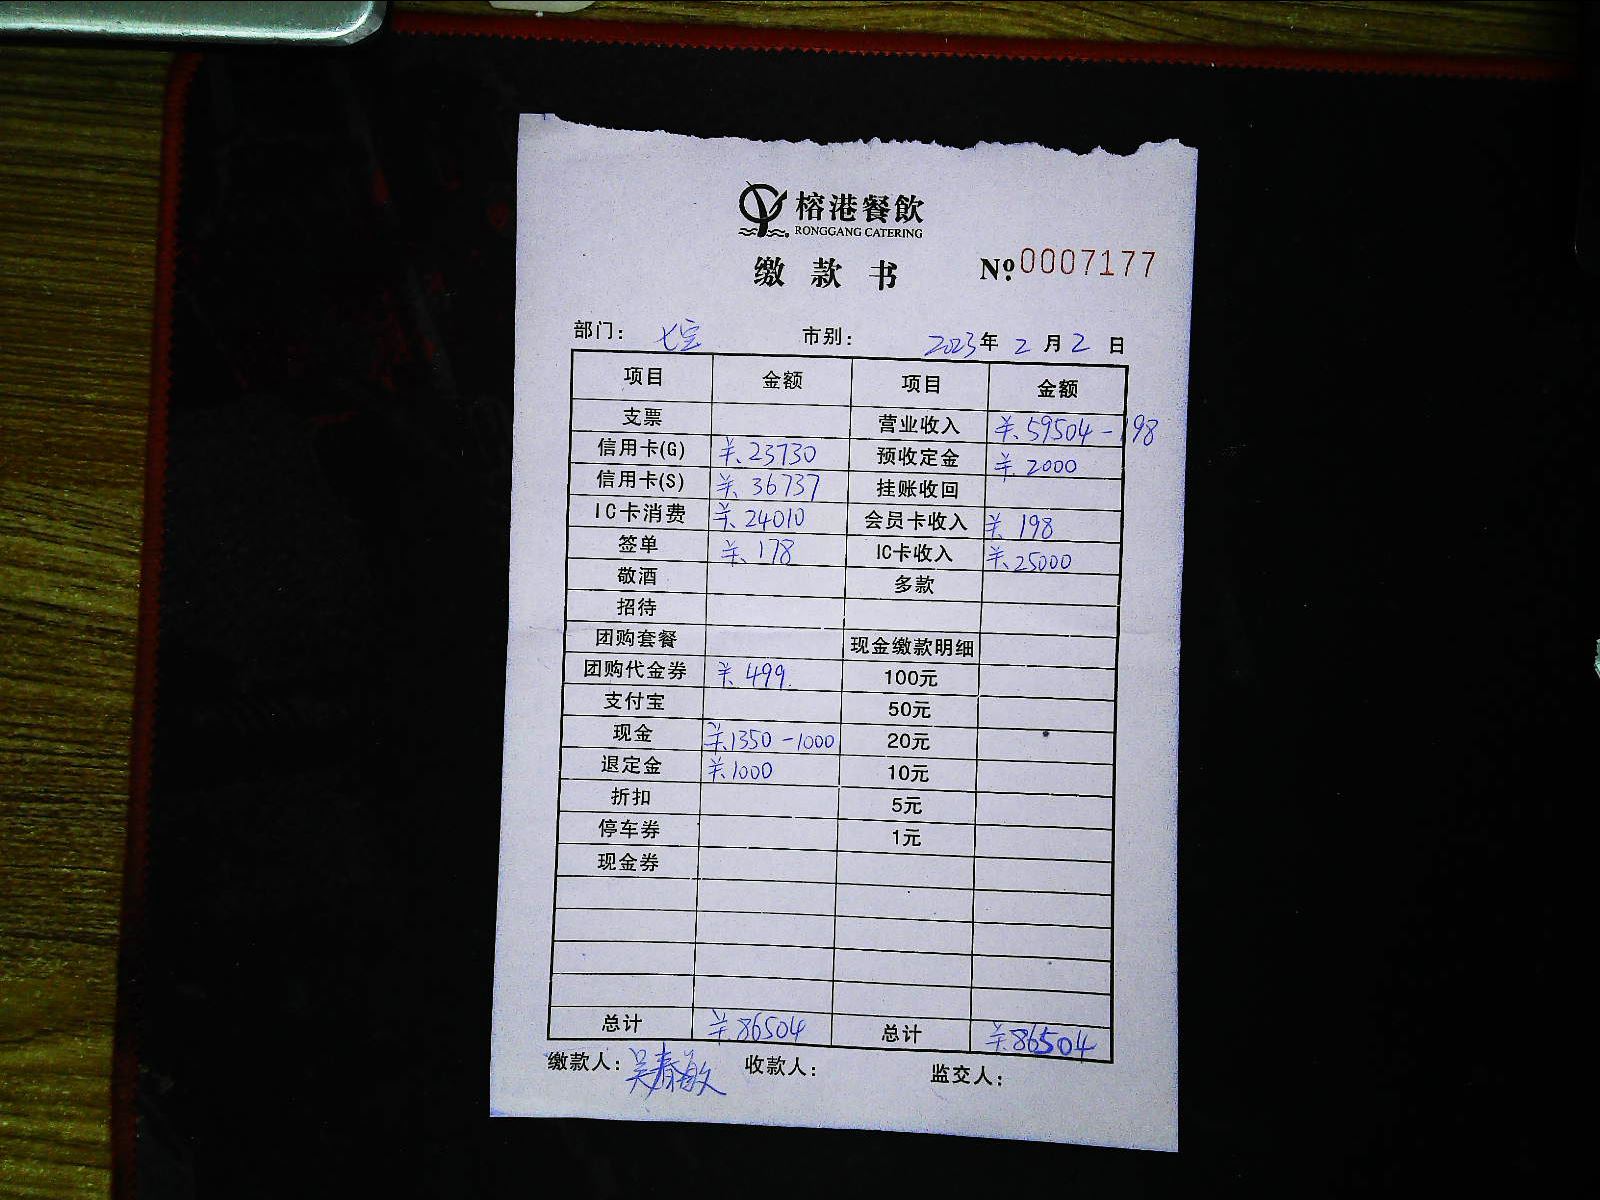 榕港餐飲
RONGGANG CATERING
缴款书 №0007177
部门: 七宝 市别: 2023年2月2日
项目 金额 项目 金额
支票 营业收入 ¥59504-198
信用卡(G) ¥23730 预收定金 ¥2000
信用卡(S) ¥36737 挂账收回
IC卡消费 ¥24010 会员卡收入 ¥198
签单 ¥178 IC卡收入 ¥25000
敬酒 多款
招待
团购套餐 现金缴款明细
团购代金券 ¥499 100元
支付宝 50元
现金 ¥1350-1000 20元
退定金 ¥1000 10元
折扣 5元
停车券 1元
现金券
总计 ¥86504 总计 ¥86504
缴款人: 吴春敏 收款人: 监交人: